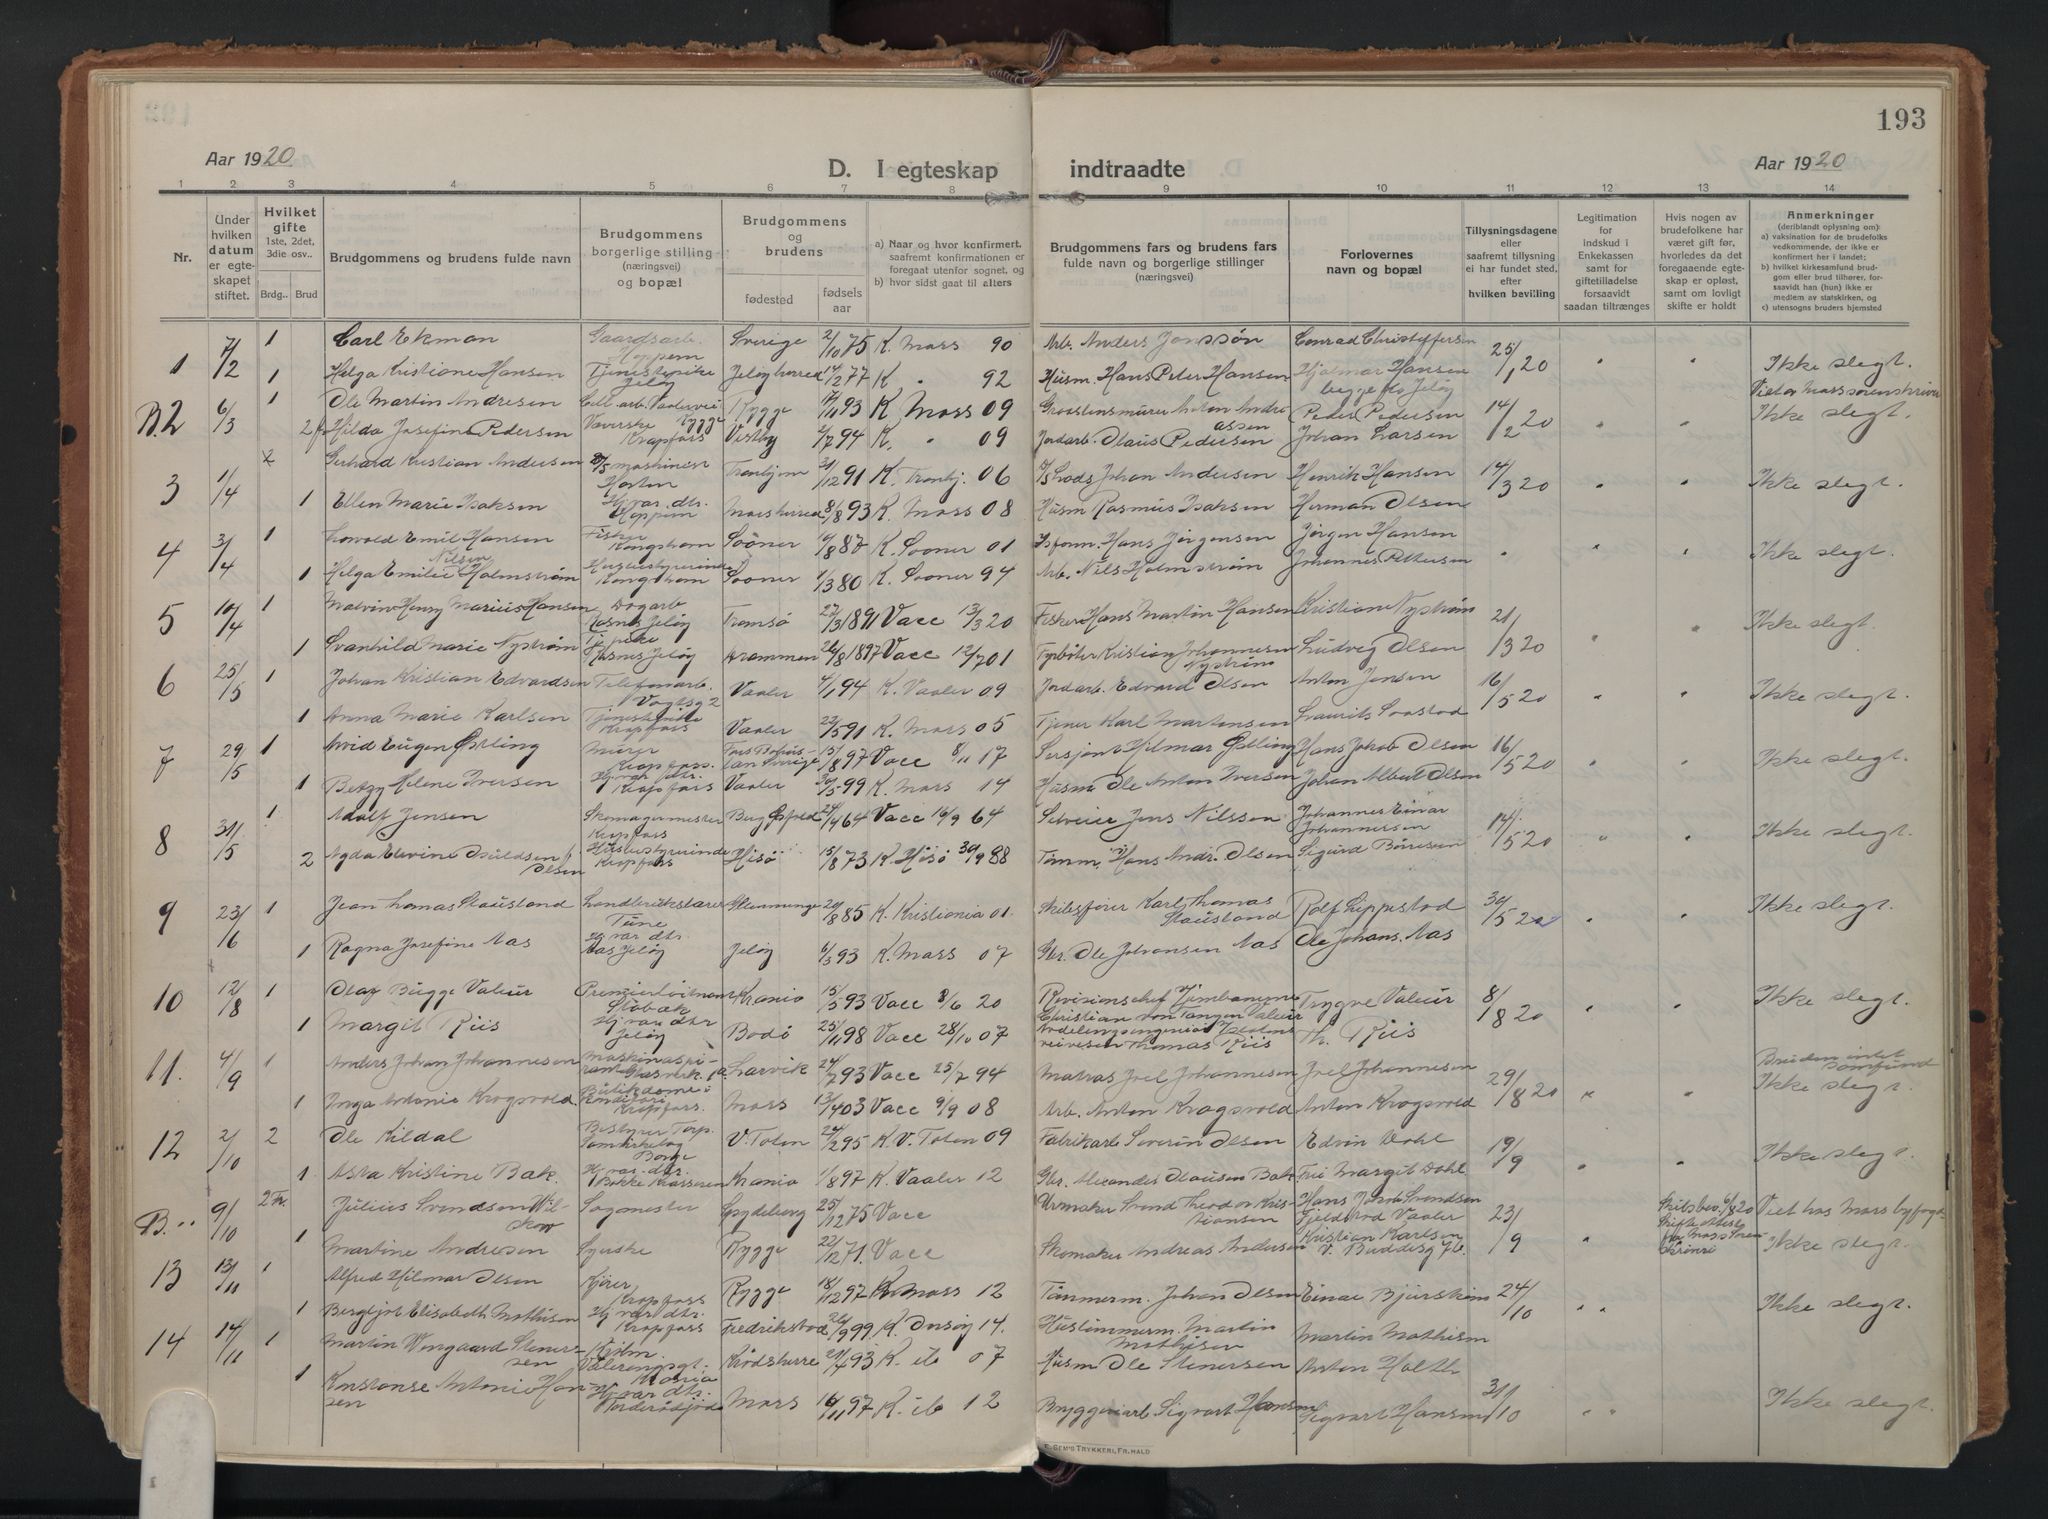 193
Aar 1920
D. I egteskap indtraadte
Aar 1920
1 2 3 4 5 6 7 8 9 10 11 12 13 14
Nr.
Under hvilken datum er egteskapet stiftet.
Hvilket gifte 1ste, 2det, 3die osv..
Brdg.. Brud
Brudgommens og brudens fulde navn
Brudgommens borgerlige stilling (næringsvei) og bopæl
Brudgommens og brudens
fødested
fødsels aar
a) Naar og hvor konfirmert, saafremt konfirmationen er foregaat utenfor sognet, og
b) hvor sidst gaat til alters
Brudgommens fars og brudens fars fulde navn og borgerlige stillinger (næringsvei)
Forlovernes navn og bopæl
Tillysningsdagene eller saafremt tillysning ei har fundet sted, efter hvilken bevilling
Legitimation for indskud i Enkekassen samt for giftetilladelse forsaavidt saadan tiltrænges
Hvis nogen av brudefolkene har været gift før, hvorledes da det foregaaende egteskap er opløst, samt om lovligt skifte er holdt
Anmerkninger (deriblandt oplysning om):
a) vaksination for de brudefolks vedkommende, der ikke er konfirmert her i landet;
b) hvilket kirkesamfund brudgom eller brud tilhører, forsaavidt han (hun) ikke er medlem av statskirken, og
c) utensogns bruders hjemsted
1 7/2 1 Carl Ekman Gaardsarb. Hoppern Sverige 2/10 75 K. Moss 90 Arb. Anders Jonssøn Conrad Christoffersen 25/1 20 Ikke slegt.
1 Helga Kristiane Hansen Tjenestepike Jeløy Jeløy herred 14/2 77 K. " 92 Husm. Hans Peter Hansen Hjalmar Hansen begge fra Jeløy
B.2 6/3 1 Ole Martin Andresen Rygge 93 K. Moss 09 Graastensmurer Anton Andreassen Peder Pedersen 14/2 20 Ikke slegt.
2 Hilda Josefine Pedersen Væverske Krapfoss Vestby 2/7 94 K. " 09 Jordarb. Olaus Pedersen Johan Larsen
3 1/4 2 Gerhard Kristian Andersen maskinist Horten Tronhjem 31/12 91 K. Tronhj. 06 Johan Andersen Henrik Hansen 14/3 20 Ikke slegt.
1 Ellen Marie Isaksen Hj.vær. dtr. Hoppern Moss herred 8/8 93 K. Moss 08 Husm Rasmus Isaksen Herman Olsen
4 3/4 1 Emil Hansen Fisker Kongshavn Sooner 87 K. Sooner 01 Hans Jørgensen Jørgen Hansen Ikke slegt.
1 Helga Emilie Nilsen Holmstrøm Husbestyrerinde Kongshavn Sooner 1/3 80 K. Sooner 94 Arb. Nils Holmstrøm Johannes Pettersen
5 10/4 1 Malvin Henry Marius Hansen Dagarb Jeløy Tromsø 27/3 1891 Vacc 13/3 20 Fisker Hans Martin Hansen Kristiane Nystrøm 21/3 20 Ikke slegt.
1 Svanhild Marie Nystrøm Tj. pike Jeløy Drammen 26/8 1897 Vacc 12/7 01 Fyrbøter Kristian Johannesen Nystrøm Ludvig Olsen
6 25/5 1 Johan Kristian Edvardsen Telefonarb. Vogtsg 2 Vaaler 4/1 94 K. Vaaler 09 Jordarb. Edvard Olsen Anton Jensen 16/5 20 Ikke slegt.
1 Anna Marie Karlsen Tjenestepike Krapfoss Vaaler 23/5 91 K. Moss 05 Tjener Karl Martensen Laurits Saastad
7 29/5 1 Arvid Eugen Østling Murer Krapfoss Sverige 15/8 97 Vacc 8/11 17 Sersjant Hilmar Østling Hans Jakob Olsen 16/5 20 Ikke slegt.
1 Betzy Helene Iversen Hj.vær. dtr. Krapfoss Vaaler 30/5 99 K. Moss 14 Husm Ole Anton Iversen Johan Albert Olsen
8 31/5 1 Adolf Jensen Skomagermester Krapfoss Berg Østfold 24/4 64 Vacc 16/9 64 Selveier Jens Nilsson Johannes Einar Johannesen 14/5 20 Ikke slegt.
2 Agda Elevine Olsen Husbestyrerinde Krapfoss Hisø 15/8 73 K. Hisø 30/9 88 Tømm. Hans Andr. Olsen Sigurd Børresen
9 23/6 1 Jean Thomas Stausland Landbrukslærer Tune 20/8 85 K. Kristiania 01. Skibsfører Karl Thomas Stausland Rolf Lippestad 30/5 20 Ikke slegt.
1 Ragna Josefine Aas Hj.vær dtr. Aas Jeløy Jeløy 6/3 93 K. Moss 07 Gbr. Ole Johansen Aas Ole Johans. Aas
10 12/8 1 Olaf Bugge Valeur Premierløitnant Stabæk Krania 15/5 93 Vacc 8/6 20 Revisionschef v/Jernbanerne Christian von Tangen Valeur Trygve Valeur 8/8 20 Ikke slegt.
1 Margit Riis Hj.vær dtr Jeløy Bodø 25/11 98 Vacc 28/10 07 Avdelingsingeniør v/Statens veivesen Thomas Riis Th. Riis
11. 4/9 1 Anders Johan Johannesen Larvik 24/7 93 Vacc 25/7 94 Matros Joel Johannesen Joel Johannesen 29/8 20 Ikke slegt.
1 Inga Antonie Krogsvold. Butikdame Krapfoss. Moss 13/4 03 Vacc 9/9 08 Arb. Anton Krogsvold Anton Krogsvold
12 2/10 2 Ole Kildal Bestyrer Torp Borge V. Toten 24/2 95 K. V. Toten 09 Fabrikarb Severin Olsen Edvin Dahl 19/9 Ikke slegt.
1 Asta Kristine Bak. Hj.vær. dtr. Krania 1/8 97 K. Vaaler 12 Gbr. Alexander Olausen Bak Fru Margit Dahl
B. " 9/10 2 Fr. Julius Svendsen Vilskov Sagmester Spydeberg 25/12 75 Vacc Urmaker Svend Theodor Kristiansen Hans Jakob Svendsen Fjeldstad Vaaler 23/9 Skilsbev. 6/8 20 Viet hos Moss byfogd
1 Martine Andresen Syerske Rygge 22/12 71. Vacc Skomaker Andreas Andersen Kristian Karlsen Ikke slegt.
13 13/11 1 Alfred Hilmar Olsen Kjører Krapfoss Rygge 18/12 97 K. Moss 12 Tømmerm. Johan Olsen Einar Bjurstrøm 24/10 Ikke slegt.
1 Bergljot Elisabeth Mathisen Hj.vær dtr. Krapfoss Fredrikstad 26/9 99 K. Onsøy 14. Hustømmerm. Martin Mathisen Martin Mathisen
14 14/11 1 Martin Wergaard Stenerssen Vaalerengsgt. Krania Krødsherre 21/4 93 K. ib 07 Husm Ole Stenersen Anton Holth 31/10 Ikke slegt.
1 Konstanse Antonie Hansen Hj.vær dtr. Moss 16/11 97 K. ib 12 Bryggeriarb Sigvart Hansen Sigvart Hansen
E. SEM'S TRYKKERI, FR.HALD